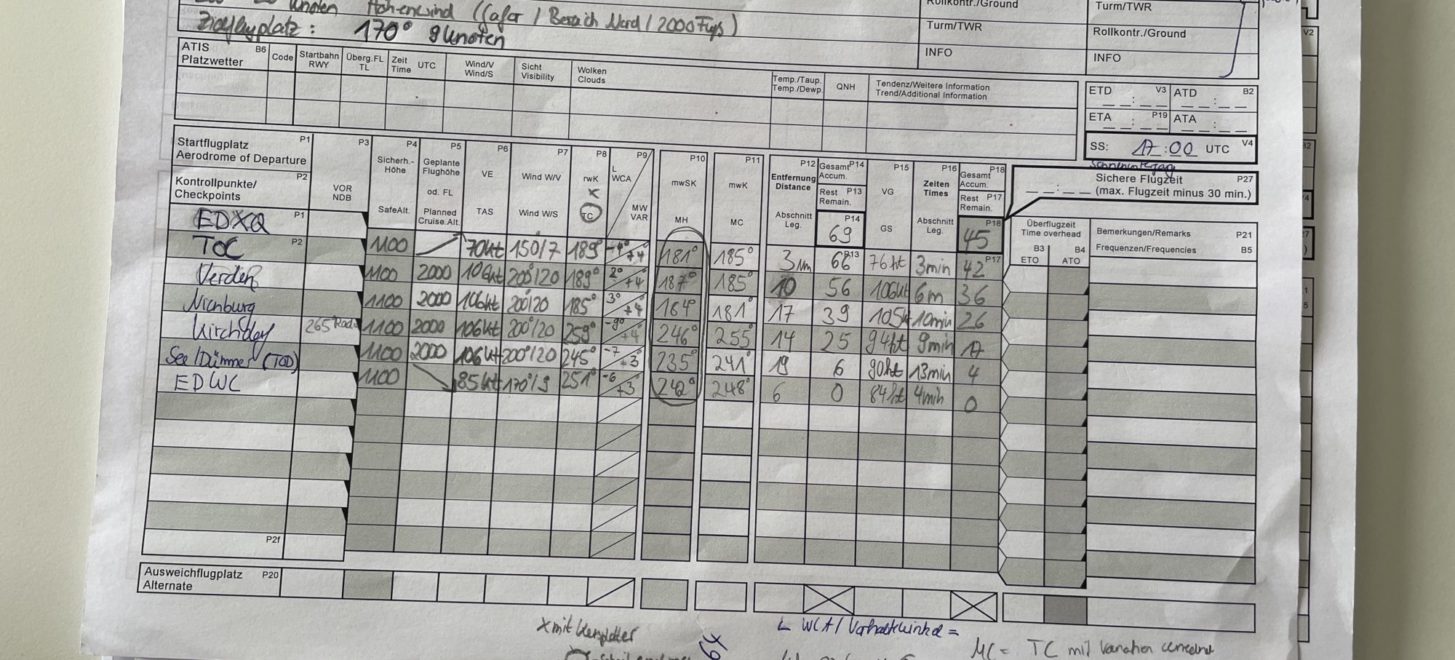 Knoten Höhenwind (Gafor / Bereich Nord / 2000 Fuß)
Zielflugplatz: 170° 9 Knoten
Rollkontr./Ground
Turm/TWR
Turm/TWR
Rollkontr./Ground
INFO
INFO
V2
ATIS B6
Platzwetter
Code
Startbahn
RWY
Überg.FL
TL
Zeit
Time UTC
Wind/V
Wind/S
Sicht
Visibility
Wolken
Clouds
Temp./Taup.
Temp./Dewp.
QNH
Tendenz/Weitere Information
Trend/Additional Information
ETD V3 ATD B2
ETA P19 ATA
SS: 17:00 UTC V4
Sichere Flugzeit P27
(max. Flugzeit minus 30 min.)
Startflugplatz P1
Aerodrome of Departure
P2
Kontrollpunkte/
Checkpoints
P3
VOR
NDB
P4
Sicherh.-
Höhe
SafeAlt.
P5
Geplante
Flughöhe
od. FL
Planned
Cruise.Alt.
P6
VE
TAS
P7
Wind W/V
Wind W/S
P8
rwK
X
TC
P9
L
WCA
MW
VAR
P10
mwSK
MH
P11
mwK
MC
P12
Entfernung
Distance
Abschnitt
Leg.
Gesamt P14
Accum.
Rest P13
Remain.
P14
69
P15
VG
GS
P16
Zeiten
Times
Abschnitt
Leg.
P18
Gesamt
Accum.
Rest P17
Remain.
P18
45
Überflugzeit
Time overhead
B3 B4
ETO ATO
Bemerkungen/Remarks P21
Frequenzen/Frequencies B5
EDXQ P1
TOC P2 1100 70kt 150/7 189° -4° +4 181° 185° 3NM 66 P13 76kt 3min 42 P17
Verden 1100 2000 106kt 200°/20 189° 2° +4 187° 185° 10 56 106kt 6m 36
Nienburg 1100 2000 106kt 200/20 185° 3° +4 184° 181° 17 39 105kt 10min 26
Kirchdorf 265 1100 2000 106kt 200°/20 259° -9° +4 246° 255° 14 25 94kt 9min 17
See/Dümmer (TOD) 1100 2000 106kt 200°/20 245° -7 +3 235° 241° 19 6 90kt 13min 4
EDWC 1100 85kt 170°/9 251° -6 +3 242° 248° 6 0 84kt 4min 0
P2f
Ausweichflugplatz P20
Alternate
X mit
L WCA / Vorhaltewinkel =
MC = TC mit Variation